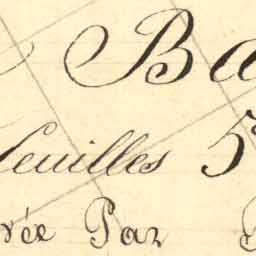 Ba
feuilles 5
vée Par